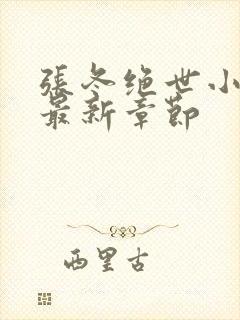 張冬绝世小
最新章節
西里古